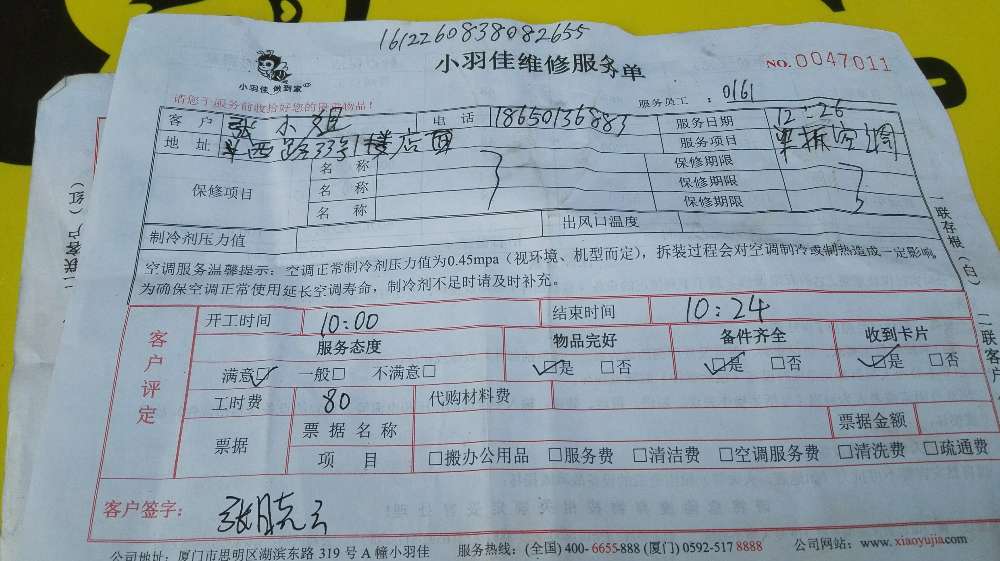 1612260838082655
小羽佳 做到家
小羽佳维修服务单
NO.0047011
请您于服务前收拾好您的贵重物品！
服务员工：0161
客户 张小姐 电话 18650136883 服务日期 12:26
地址 西路33号1楼店面 服务项目 单拆空调
保修项目 名称 保修期限
名称 保修期限
名称 保修期限
制冷剂压力值 出风口温度
空调服务温馨提示：空调正常制冷剂压力值为0.45mpa（视环境、机型而定），拆装过程会对空调制冷或制热造成一定影响。
为确保空调正常使用延长空调寿命，制冷剂不足时请及时补充。
客户评定
开工时间 10:00 结束时间 10:24
服务态度 物品完好 备件齐全 收到卡片
满意☑ 一般□ 不满意□ ☑是 □否 ☑是 □否 ☑是 □否
工时费 80 代购材料费
票据 票据名称 票据金额
项目 □搬办公用品 □服务费 □清洁费 □空调服务费 □清洗费 □疏通费
客户签字：
公司地址：厦门市思明区湖滨东路 319 号 A 幢小羽佳 服务热线：(全国) 400-6655-888 (厦门) 0592-517 8888 公司网站：www.xiaoyujia.com
一联存根（白） 二联客户
二联客户（红）